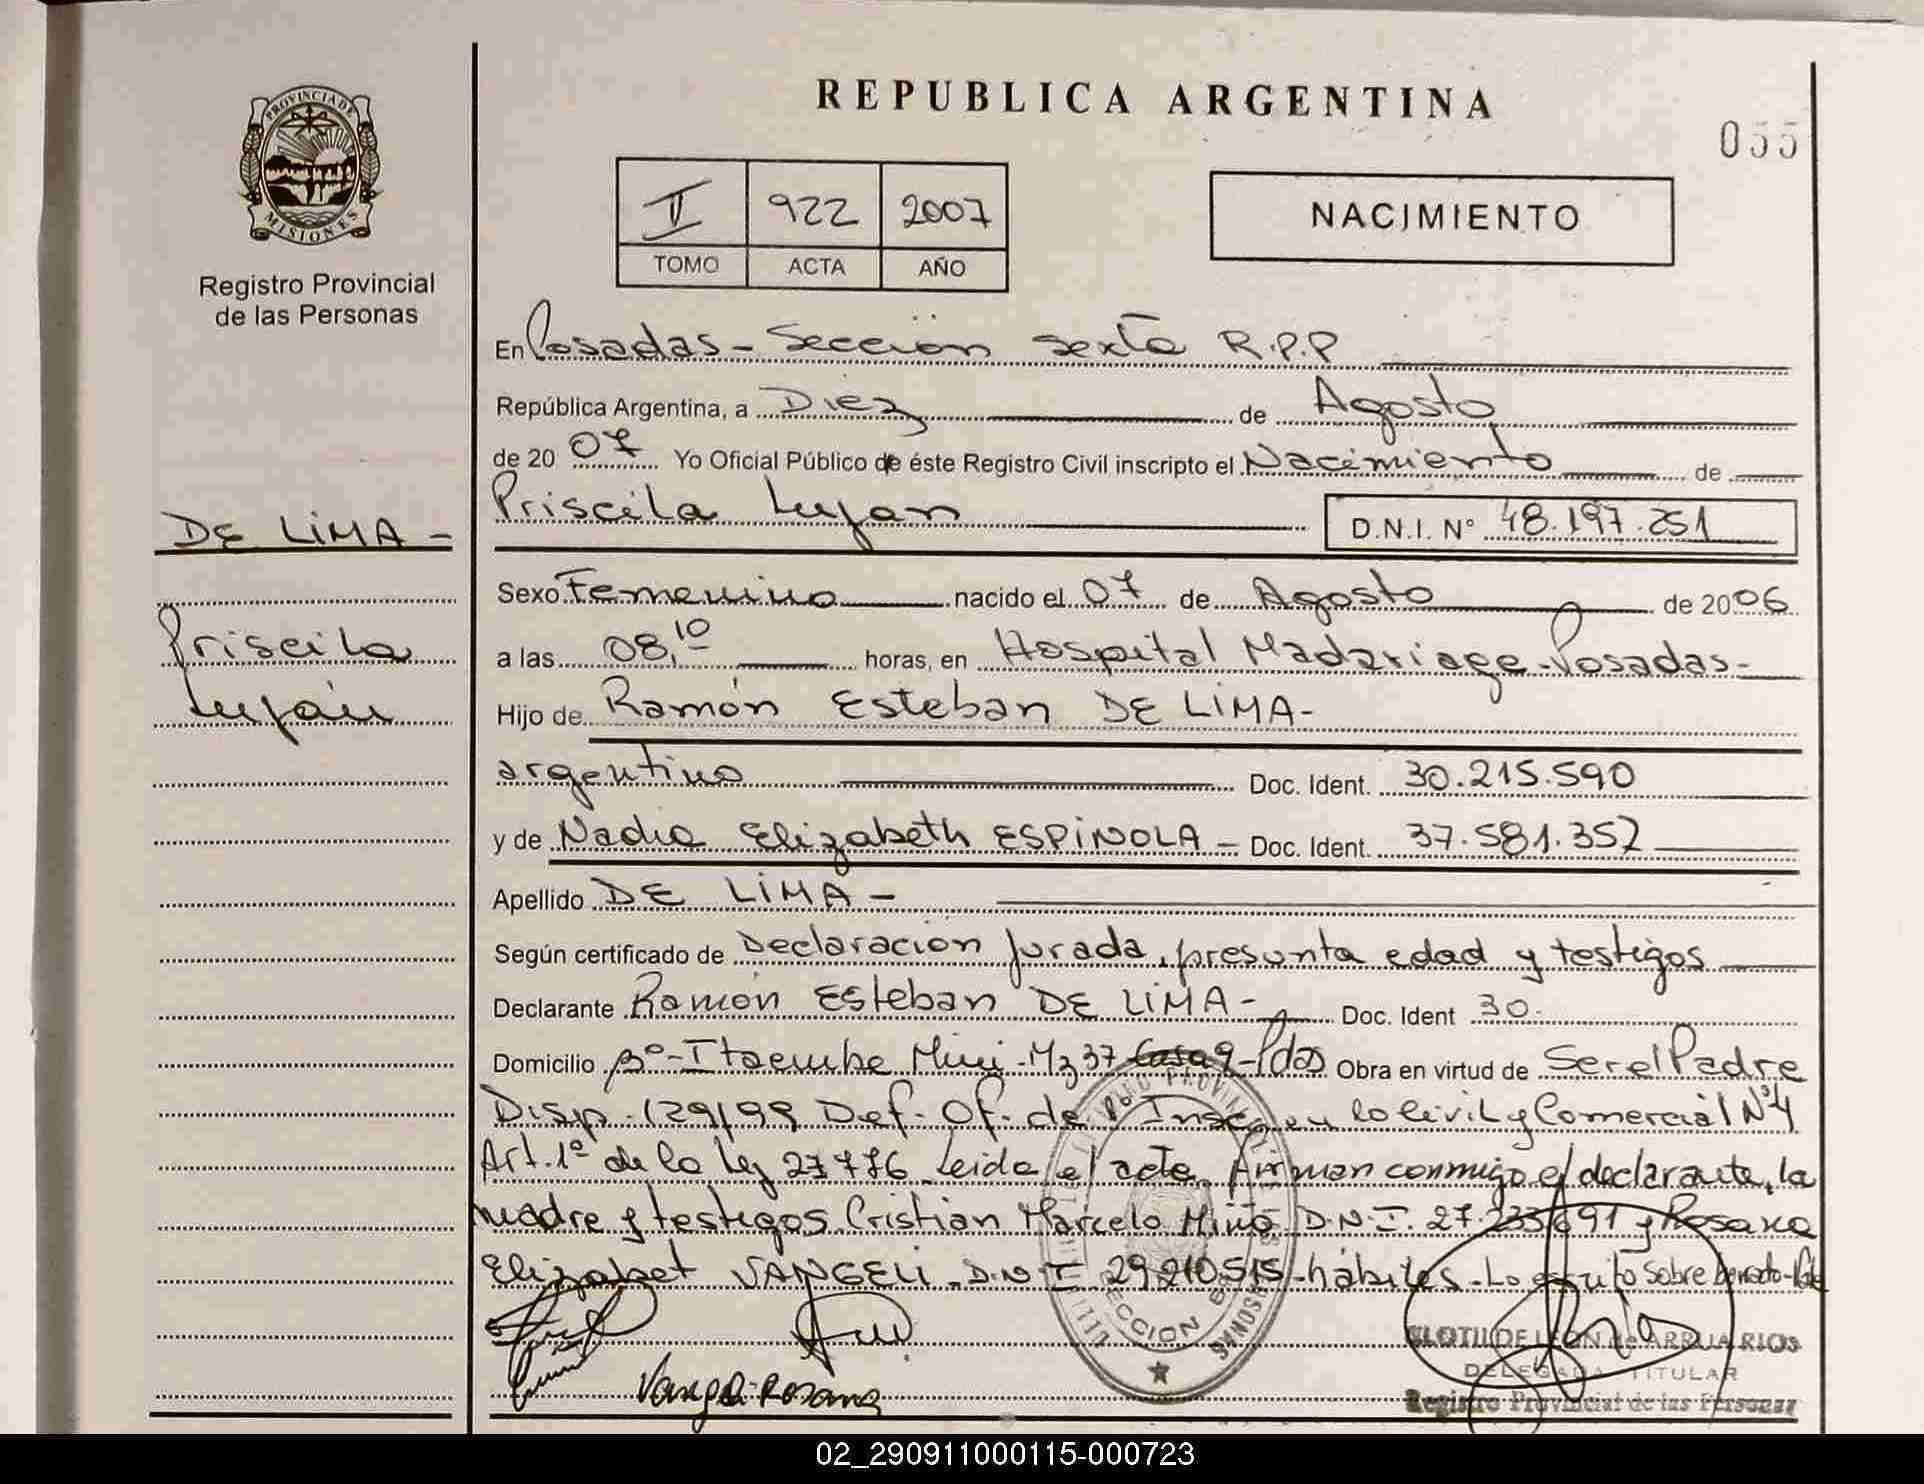 PROVINCIA DE
MISIONES
Registro Provincial
de las Personas
DE LIMA -
Priscila
Luján
REPUBLICA ARGENTINA
055
II 922 2007
TOMO ACTA AÑO
NACIMIENTO
En Posadas - Sección Sexta R.P.P
República Argentina, a Diez de Agosto
de 20 07 Yo Oficial Público de éste Registro Civil inscripto el Nacimiento de
Priscila Lujan D.N.I. N° 48.197.251
Sexo Femenino nacido el 07 de Agosto de 2006
a las 08,10 horas, en Hospital Madariaga - Posadas -
Hijo de Ramón Esteban DE LIMA -
argentino Doc. Ident. 30.215.590
y de Nadia Elizabeth ESPINOLA - Doc. Ident. 37.581.352
Apellido DE LIMA -
Según certificado de Declaración Jurada, presunta edad y testigos
Declarante Ramón Esteban DE LIMA - Doc. Ident 30.
Domicilio B°- Itaembe Mini - Mz 37 Casa 9 - Pdas Obra en virtud de Ser el Padre
Disp. 129/99 Def. Of. de en lo Civil y Comercial N° 4
Art. 1° de la Ley Leida el acta, firman conmigo el declarante, la
madre y testigos Cristian Marcelo Miño D.N.I. 27.235.691 y Rosana
Elizabet VANGELI. D.N.I 29.210.515 - hábiles - Lo escrito sobre borrado - Vale
Vangeli Rosana
CLOTILDE LEON de ARRUA RIOS
DELEGADA TITULAR
Registro Provincial de las Personas
02_290911000115-000723